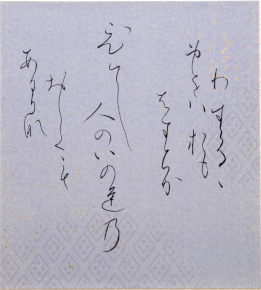 わすらるゝ
身をハおも
はすちか
ひてし人のいのち乃
おしくも
あるか那